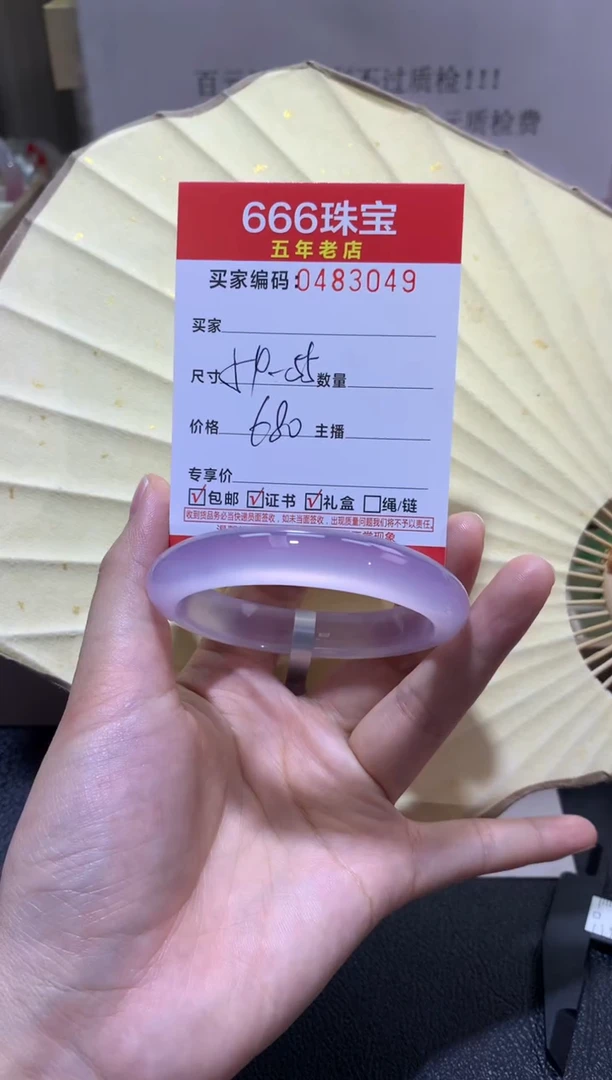 不过质检!!!
质检费
666珠宝
五年老店
买家编码:0483049
买家
尺寸 55 数量
价格 680 主播
专享价
包邮 证书 礼盒 绳/链
收到货品务必当快递员面签收,如未当面签收,出现质量问题我们将不予以责任。